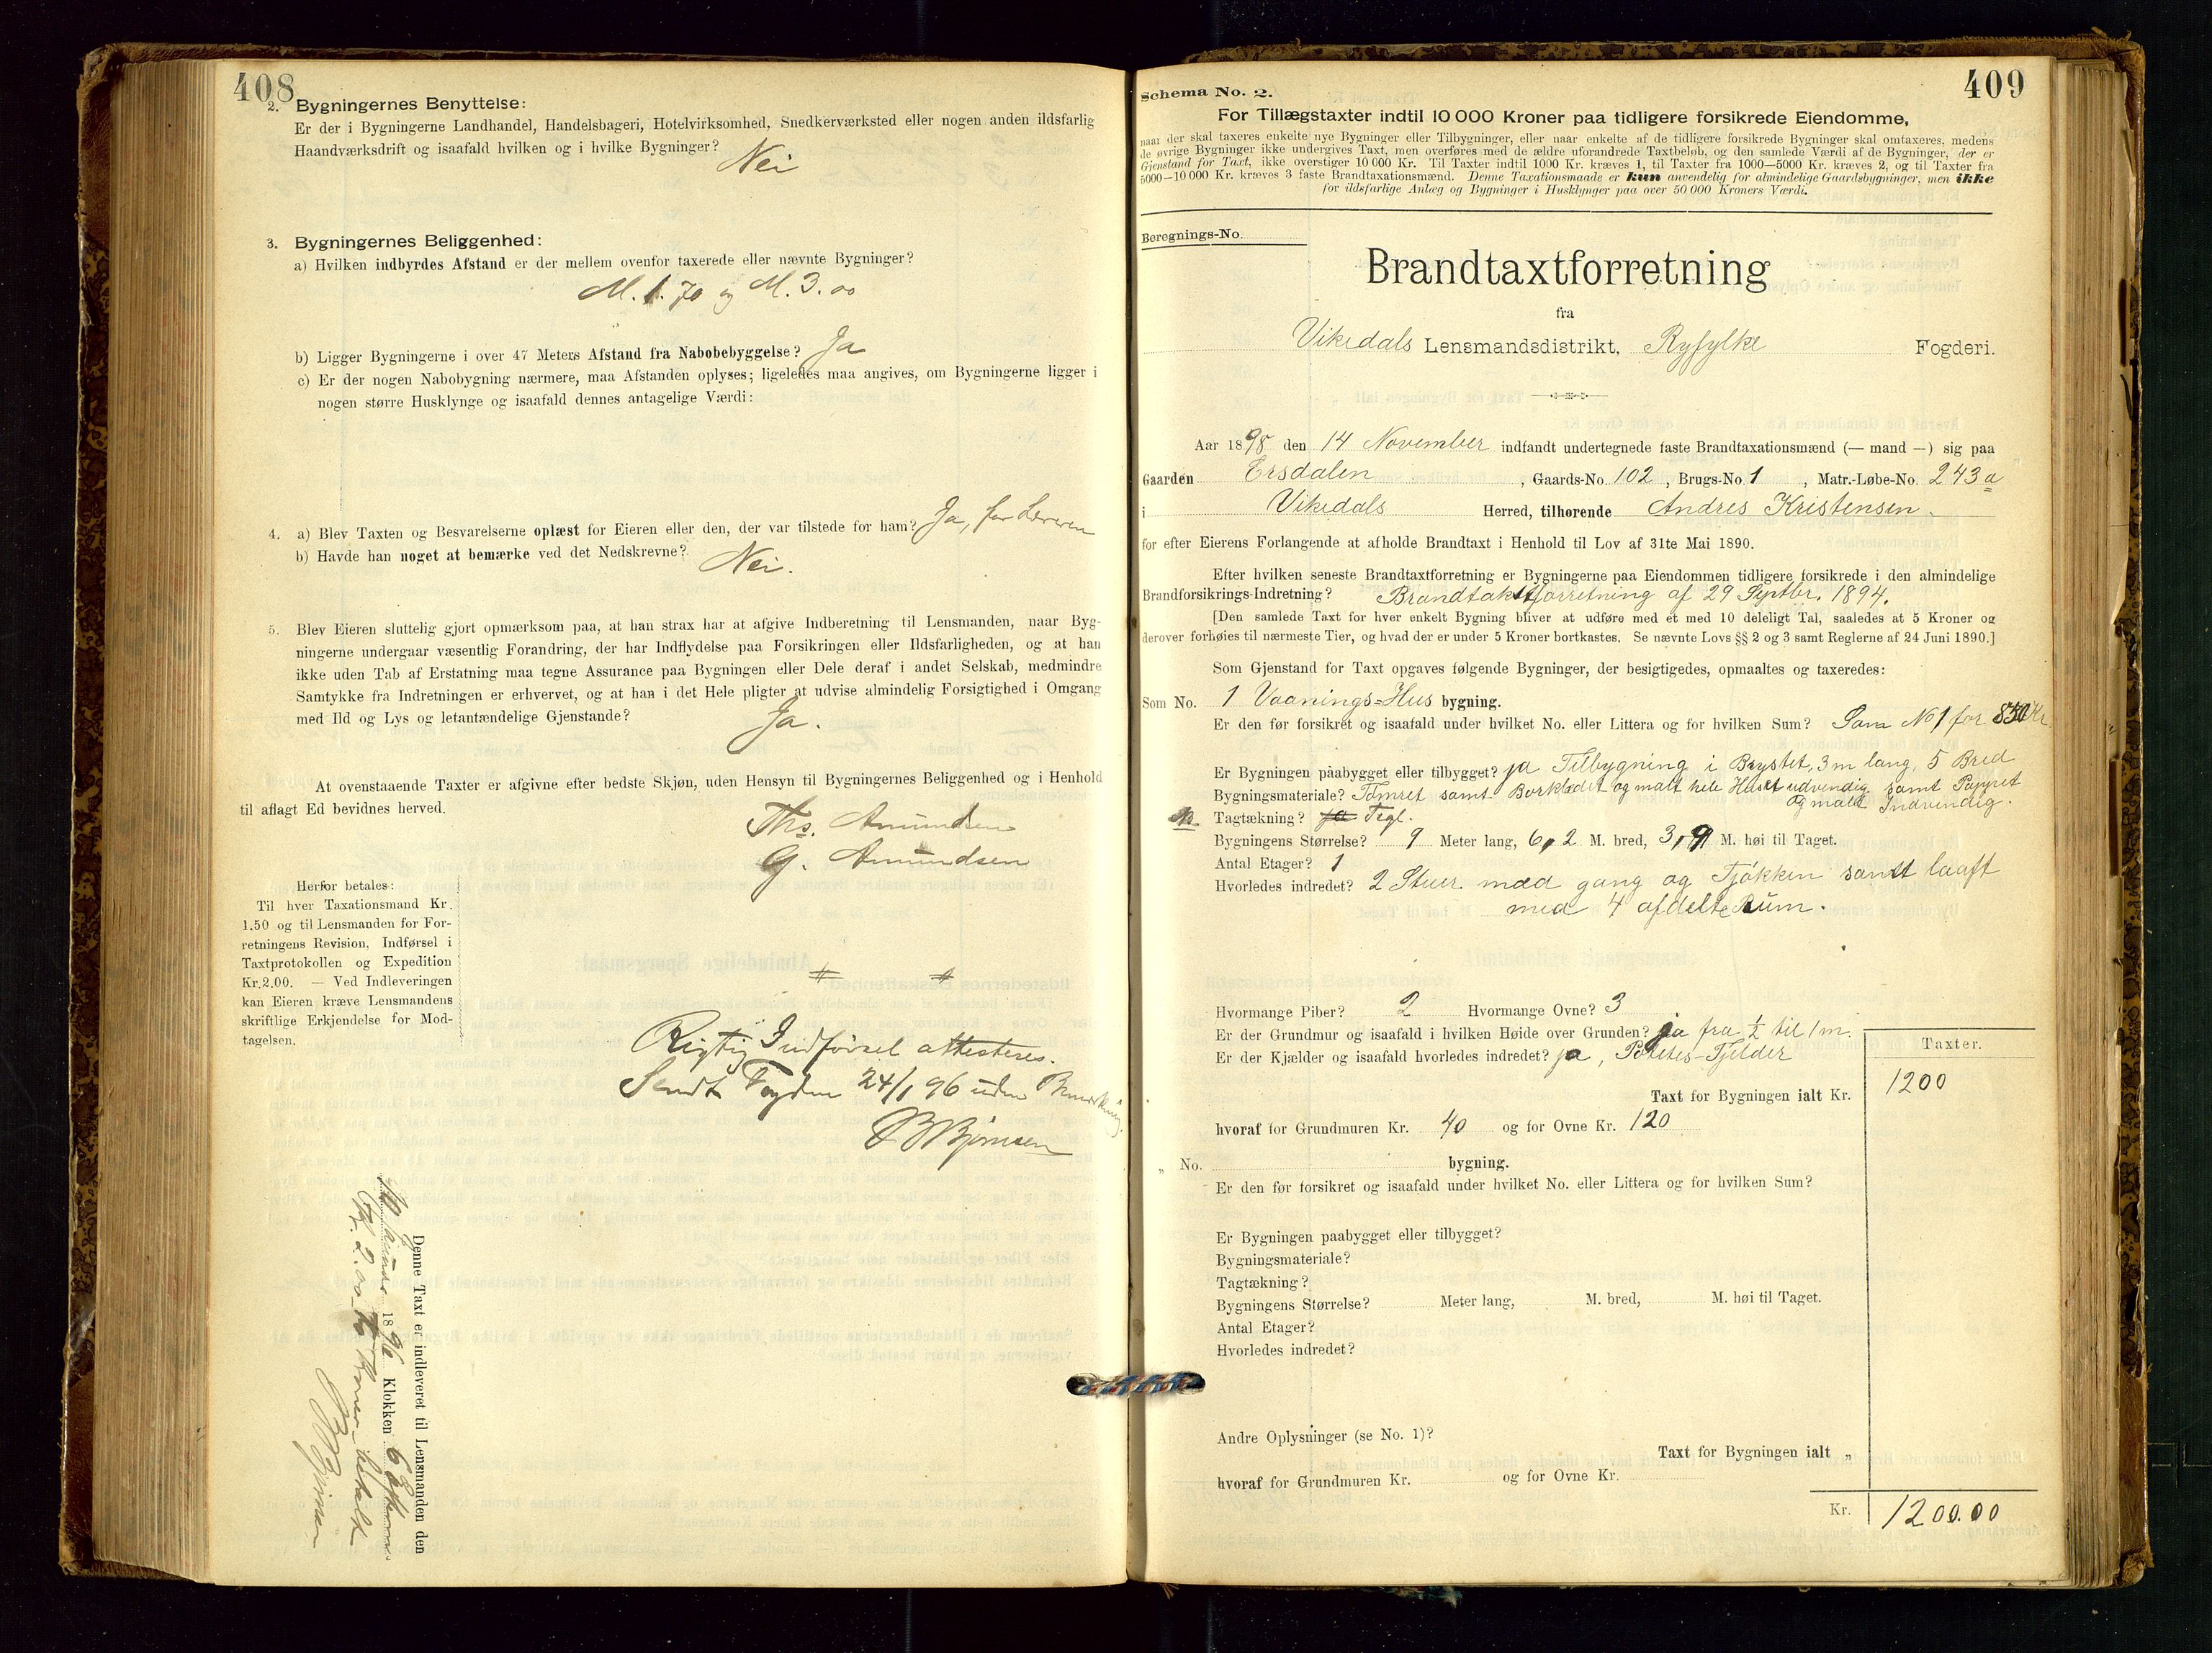 408
2. Bygningernes Benyttelse:
Er der i Bygningerne Landhandel, Handelsbageri, Hotelvirksomhed, Snedkerværksted eller nogen anden ildsfarlig
Haandværksdrift og isaafald hvilken og i hvilke Bygninger? Nei
3. Bygningernes Beliggenhed:
a) Hvilken indbyrdes Afstand er der mellem ovenfor taxerede eller nævnte Bygninger?
M. 1.70 og M. 3.00
b) Ligger Bygningerne i over 47 Meters Afstand fra Nabobebyggelse? Ja
c) Er der nogen Nabobygning nærmere, maa Afstanden oplyses; ligeledes maa angives, om Bygningerne ligger i
nogen større Husklynge og isaafald dennes antagelige Værdi:
4. a) Blev Taxten og Besvarelserne oplæst for Eieren eller den, der var tilstede for ham? Ja, for
b) Havde han noget at bemærke ved det Nedskrevne? Nei.
5. Blev Eieren sluttelig gjort opmærksom paa, at han strax har at afgive Indberetning til Lensmanden, naar Byg-
ningerne undergaar væsentlig Forandring, der har Indflydelse paa Forsikringen eller Ildsfarligheden, og at han
ikke uden Tab af Erstatning maa tegne Assurance paa Bygningen eller Dele deraf i andet Selskab, medmindre
Samtykke fra Indretningen er erhvervet, og at han i det Hele pligter at udvise almindelig Forsigtighed i Omgang
med Ild og Lys og letantændelige Gjenstande? Ja.
At ovenstaaende Taxter er afgivne efter bedste Skjøn, uden Hensyn til Bygningernes Beliggenhed og i Henhold
til aflagt Ed bevidnes herved.
Ths. Amundsen
G. Amundsen
Herfor betales:
Til hver Taxationsmand Kr.
1.50 og til Lensmanden for For-
retningens Revision, Indførsel i
Taxtprotokollen og Expedition
Kr. 2.00. — Ved Indleveringen
kan Eieren kræve Lensmandens
skriftlige Erkjendelse for Mod-
tagelsen.
Rigtig Indførsel attesteres.
Sendt Fogden 24/1 96 uden Bemærkning.
B Bjørnsen
Denne Taxt er indleveret til Lensmanden den
1896 Klokken 6 Efterm
2.00 Kroner betalt
B Bjørnsen
409
Schema No. 2.
For Tillægstaxter indtil 10 000 Kroner paa tidligere forsikrede Eiendomme,
naar der skal taxeres enkelte nye Bygninger eller Tilbygninger, eller naar enkelte af de tidligere forsikrede Bygninger skal omtaxeres, medens
de øvrige Bygninger ikke undergives Taxt, men overføres med de ældre uforandrede Taxtbeløb, og den samlede Værdi af de Bygninger, der er
Gjenstand for Taxt, ikke overstiger 10 000 Kr. Til Taxter indtil 1000 Kr. kræves 1, til Taxter fra 1000—5000 Kr. kræves 2, og til Taxter fra
5000—10 000 Kr. kræves 3 faste Brandtaxationsmænd. Denne Taxationsmaade er kun anvendelig for almindelige Gaardsbygninger, men ikke
for ildsfarlige Anlæg og Bygninger i Husklynger paa over 50 000 Kroners Værdi.
Beregnings-No.
Brandtaxtforretning
fra
Vikedals Lensmandsdistrikt, Ryfylke Fogderi.
Aar 1898 den 14 November indfandt undertegnede faste Brandtaxationsmænd (— mand —) sig paa
Gaarden Ersdalen, Gaards-No. 102, Brugs-No. 1, Matr.-Løbe-No. 243a
i Vikedals Herred, tilhørende Andres Kristensen.
for efter Eierens Forlangende at afholde Brandtaxt i Henhold til Lov af 31te Mai 1890.
Efter hvilken seneste Brandtaxtforretning er Bygningerne paa Eiendommen tidligere forsikrede i den almindelige
Brandforsikrings-Indretning? Brandtakstforretning af 29 Septbr. 1894.
[Den samlede Taxt for hver enkelt Bygning bliver at udføre med et med 10 deleligt Tal, saaledes at 5 Kroner og
derover forhøies til nærmeste Tier, og hvad der er under 5 Kroner bortkastes. Se nævnte Lovs §§ 2 og 3 samt Reglerne af 24 Juni 1890.]
Som Gjenstand for Taxt opgaves følgende Bygninger, der besigtigedes, opmaaltes og taxeredes:
Som No. 1 Vaanings=Hus bygning.
Er den før forsikret og isaafald under hvilket No. eller Littera og for hvilken Sum? Som No 1 for 850 Kr
Er Bygningen paabygget eller tilbygget? ja Tilbygning i Brystet, 3 m lang, 5 Bred
Bygningsmateriale? Tømret samt Borkledet og malt hele Huset udvendig samt Pappret
og malt Indvendig.
Tagtækning? Tegl.
Bygningens Størrelse? 9 Meter lang, 6,2 M. bred, 3,9 M. høi til Taget.
Antal Etager? 1
Hvorledes indredet? 2 Stuer med gang og Tjøkken samt laaft
med 4 afdelte Rum.
Hvormange Piber? 2 Hvormange Ovne? 3
Er der Grundmur og isaafald i hvilken Høide over Grunden? ja fra ½ til 1 m.
Er der Kjælder og isaafald hvorledes indredet? ja, Potetes-Tjelder
Taxter.
Taxt for Bygningen ialt Kr. 1200
hvoraf for Grundmuren Kr. 40 og for Ovne Kr. 120
„ No. bygning.
Er den før forsikret og isaafald under hvilket No. eller Littera og for hvilken Sum?
Er Bygningen paabygget eller tilbygget?
Bygningsmateriale?
Tagtækning?
Bygningens Størrelse? Meter lang, M. bred, M. høi til Taget.
Antal Etager?
Hvorledes indredet?
Andre Oplysninger (se No. 1)?
Taxt for Bygningen ialt „
hvoraf for Grundmuren Kr. og for Ovne Kr.
Kr. 1200.00